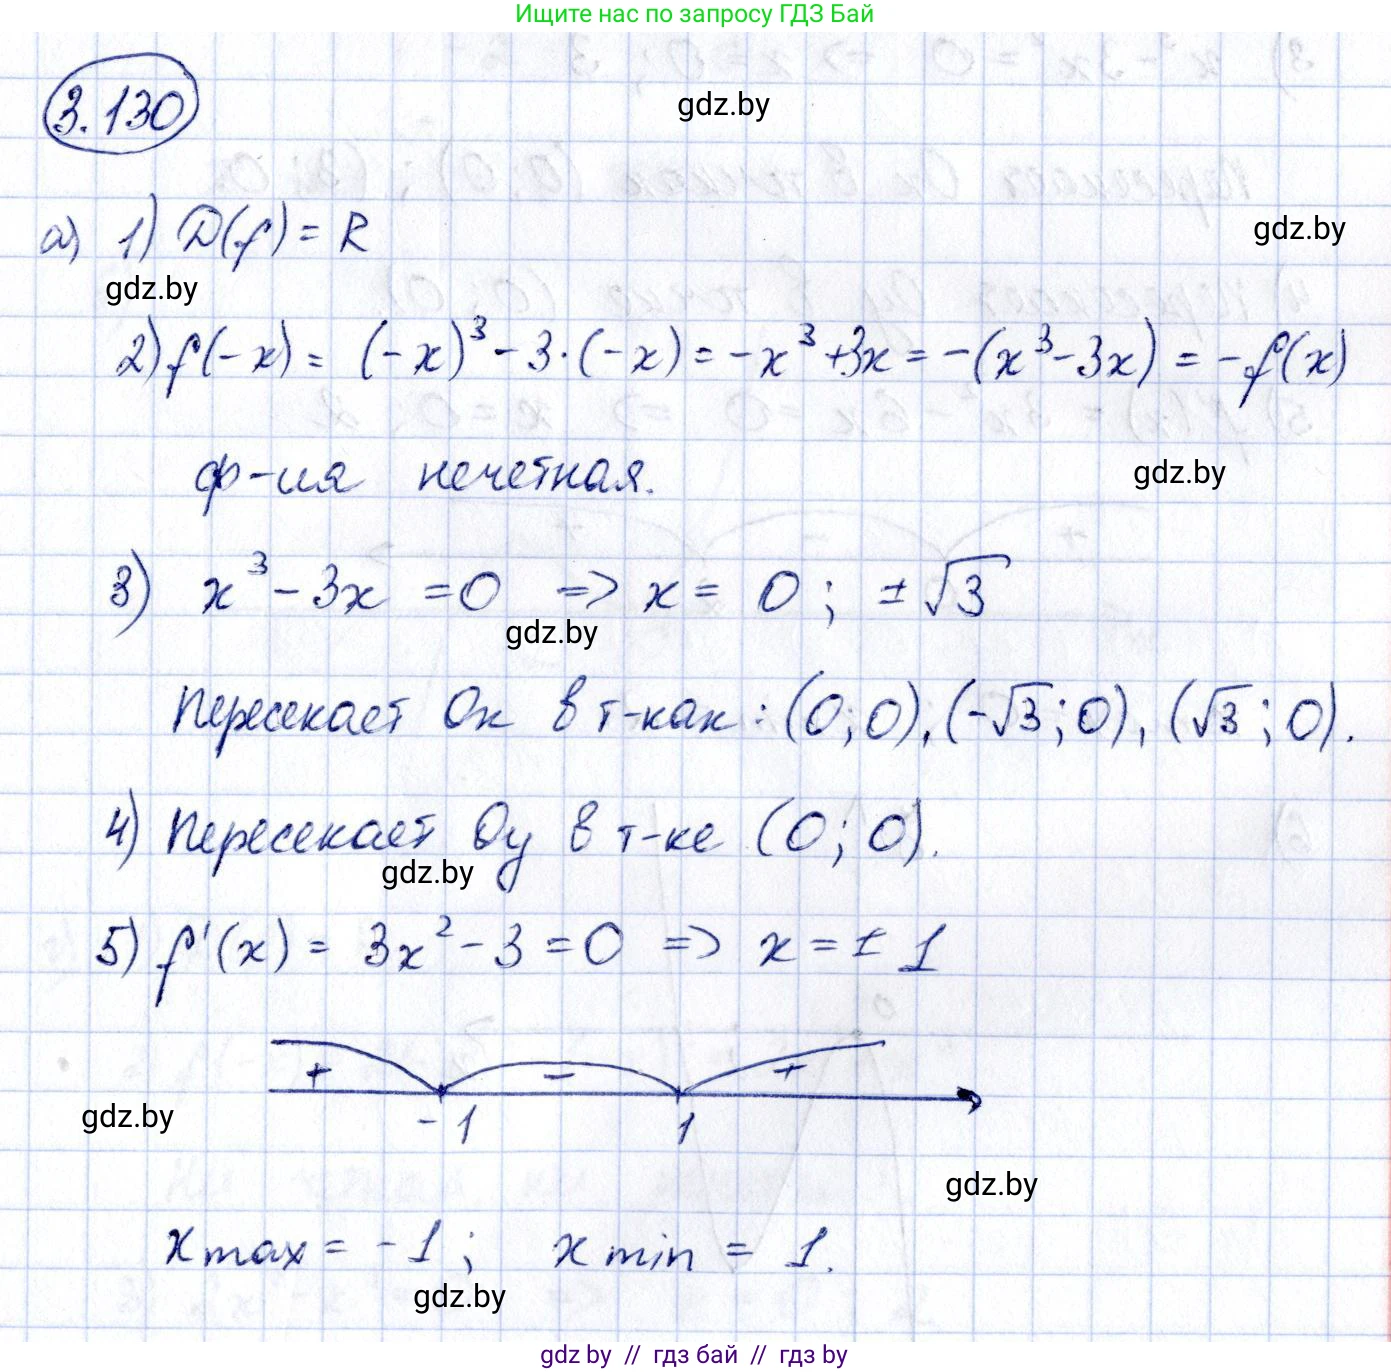 Ищите нас по запросу ГДЗ Бай
3.130
gdz.by
а) 1) D(f) = R
gdz.by
gdz.by
2) f(-x) = (-x)³ - 3·(-x) = -x³ + 3x = -(x³ - 3x) = -f(x)
ф-ия нечетная.
gdz.by
3) x³ - 3x = 0 => x = 0; ±√3
gdz.by
Пересекает Ох в т-ках: (0;0), (-√3;0), (√3;0).
4) Пересекает Оу в т-ке (0;0).
gdz.by
5) f'(x) = 3x² - 3 = 0 => x = ± 1
+ - +
-1 1
gdz.by
gdz.by
xmax = -1; xmin = 1.
gdz.by
gdz by // гдз бай // gdz by